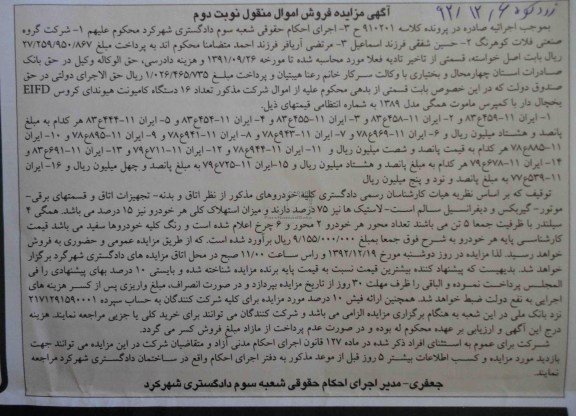 زودکوه ۹۲/۱۲/۶
آگهی مزایده فروش اموال منقول نوبت دوم
بموجب اجرائیه صادره در پرونده کلاسه ۹۱۰۲۰۱ ح ۳- اجرای احکام حقوقی شعبه سوم دادگستری شهرکرد محکوم علیهم ۱- شرکت گروه
صنعتی فلات کوهرنگ ۲- حسین شفقی فرزند اسماعیل ۳- مرتضی آریافر فرزند احمد متضامنا محکوم اند به پرداخت مبلغ ۲۷/۲۵۹/۹۵۰/۸۶۷
ریال بابت اصل خواسته، قسمتی از تاخیر تادیه فعلا مورد محاسبه شده تا مورخه ۱۳۹۱/۰۹/۲۶ و هزینه دادرسی، حق الوکاله وکیل در حق بانک
صادرات استان چهارمحال و بختیاری با وکالت سرکار خانم رعنا هیبتیان و پرداخت مبلغ ۱/۰۲۶/۴۶۵/۷۳۵ ریال حق الاجرای دولتی در حق
صندوق دولت که در این خصوص بابت قسمتی از بدهی محکوم علیه از اموال شرکت مذکور تعداد ۱۶ دستگاه کامیونت هیوندای کروس EIFD
یخچال دار با کمپرس ماموت همگی مدل ۱۳۸۹ به شماره انتظامی قیمتهای ذیل.
۱- ایران ۱۱-۴۵۹ع۸۳ و ۲- ایران ۱۱-۴۵۸ع۸۳ و ۳- ایران ۱۱-۴۵۵ع۸۳ و ۴- ایران ۱۱-۴۵۲ع۸۳ و ۵- ایران ۱۱-۴۴۴ع۸۳ هر کدام به مبلغ
پانصد و هشتاد میلیون ریال و ۶- ایران ۱۱-۹۶۹ع۷۸ و ۷- ایران ۱۱-۹۲۳ع۷۸ و ۸- ایران ۱۱-۹۴۱ع۷۸ و ۹- ایران ۱۱-۸۹۵ع۷۸ و ۱۰- ایران
۱۱-۸۸۵ع۷۸ هر کدام به قیمت پانصد و شصت میلیون ریال و ۱۱- ایران ۱۱-۹۴۴ع۷۸ و ۱۲- ایران ۱۱-۷۱۱ع۷۹ و ۱۳- ایران ۱۱-۶۹۱ع۸۳ و
۱۴- ایران ۱۱-۶۷۸ع۷۹ هر کدام به مبلغ پانصد و هشتاد میلیون ریال و ۱۵-ایران ۱۱-۷۲۵ع۷۹ به مبلغ پانصد و چهل میلیون ریال و ۱۶- ایران
۱۱-۵۳۹ع۷۷ به مبلغ پانصد و نود و پنج میلیون ریال
توقیف که بر اساس نظریه هیات کارشناسان رسمی دادگستری کلیه خودروهای مذکور از نظر اتاق و بدنه- تجهیزات اتاق و قسمتهای برقی-
موتور- گیربکس و دیفرانسیل سالم است- لاستیک ها نیز ۷۵ درصد دارند و میزان استهلاک کلی هر خودرو نیز ۱۵ درصد می باشد. همگی ۴
سیلندر با ظرفیت جمعا ۵ تن می باشند تعداد محور هر خودرو ۲ محور و ۶ چرخ اعلام شده است و رنگ کلیه خودروها سفید می باشد قیمت
کارشناسی پایه هر خودرو به شرح فوق جمعا بمبلغ ۹/۱۵۵/۰۰۰/۰۰۰ ریال برآورد شده است. که از طریق مزایده عمومی و حضوری به فروش
خواهد رسید. لذا مزایده در روز دوشنبه مورخ ۱۳۹۲/۱۲/۱۹ و راس ساعت ۱۱/۰۰ صبح در محل اتاق مزایده های دادگستری شهرکرد برگزار
خواهد شد. بدیهیست که پیشنهاد کننده بیشترین قیمت نسبت به قیمت پایه برنده مزایده شناخته شده و بایستی ۱۰ درصد بهای پیشنهادی را فی
المجلس پرداخت نموده و الباقی را ظرف مهلت ۳۰ روز از تاریخ مزایده بپردازد و در صورت انصراف، مبلغ واریزی پس از کسر هزینه های
اجرایی به نفع دولت ضبط خواهد شد. همچنین ارائه فیش ۱۰ درصد مورد مزایده برای کلیه شرکت کنندگان به حساب سپرده ۲۱۷۱۲۹۱۵۹۰۰۰۱
نزد بانک ملی در این شعبه به هنگام برگزاری مزایده الزامی می باشد و شرکت کنندگان می توانند برای خرید کلی یا جزیی مراجعه نمایند. هزینه
درج این آگهی و ارزیابی بر عهده محکوم له بوده و در صورت عدم پرداخت از مازاد مبلغ فروش کسر می گردد.
شرکت برای عموم به استثنای افراد ذکر شده در ماده ۱۲۷ قانون اجرای احکام مدنی آزاد و متقاضیان شرکت در این مزایده می توانند جهت
بازدید مورد مزایده و کسب اطلاعات بیشتر ۵ روز قبل از موعد مذکور به دفتر اجرای احکام واقع در ساختمان دادگستری شهرکرد مراجعه
نمایند.
جعفری- مدیر اجرای احکام حقوقی شعبه سوم دادگستری شهرکرد